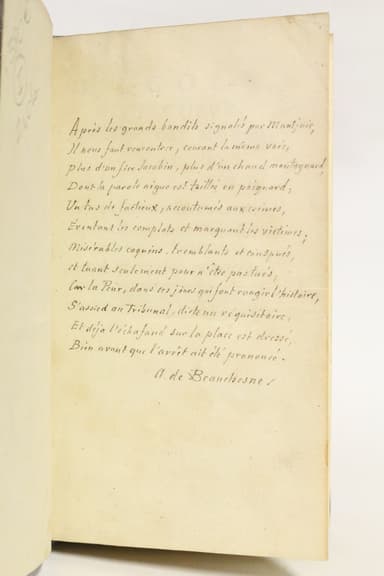 Après les grands bandits signalés par Montjoie,
Il nous faut rencontrer, courant la même voie,
Plus d'un fier Jacobin, plus d'un chaud montagnard,
Dont la parole aigue est taillée en poignard;
Un tas de factieux, accoutumés aux crimes,
Éventant les complots et marquant les victimes;
Misérables coquins, tremblants et conspués,
et tuant seulement pour n'être pas tués,
Car la Peur, dans ces jours qui font rougir l'histoire,
S'assied au Tribunal, dicte un réquisitoire;
Et déjà l'échafaud sur la place est dressé,
Bien avant que l'arrêt ait été prononcé.
A. de Beauchesne